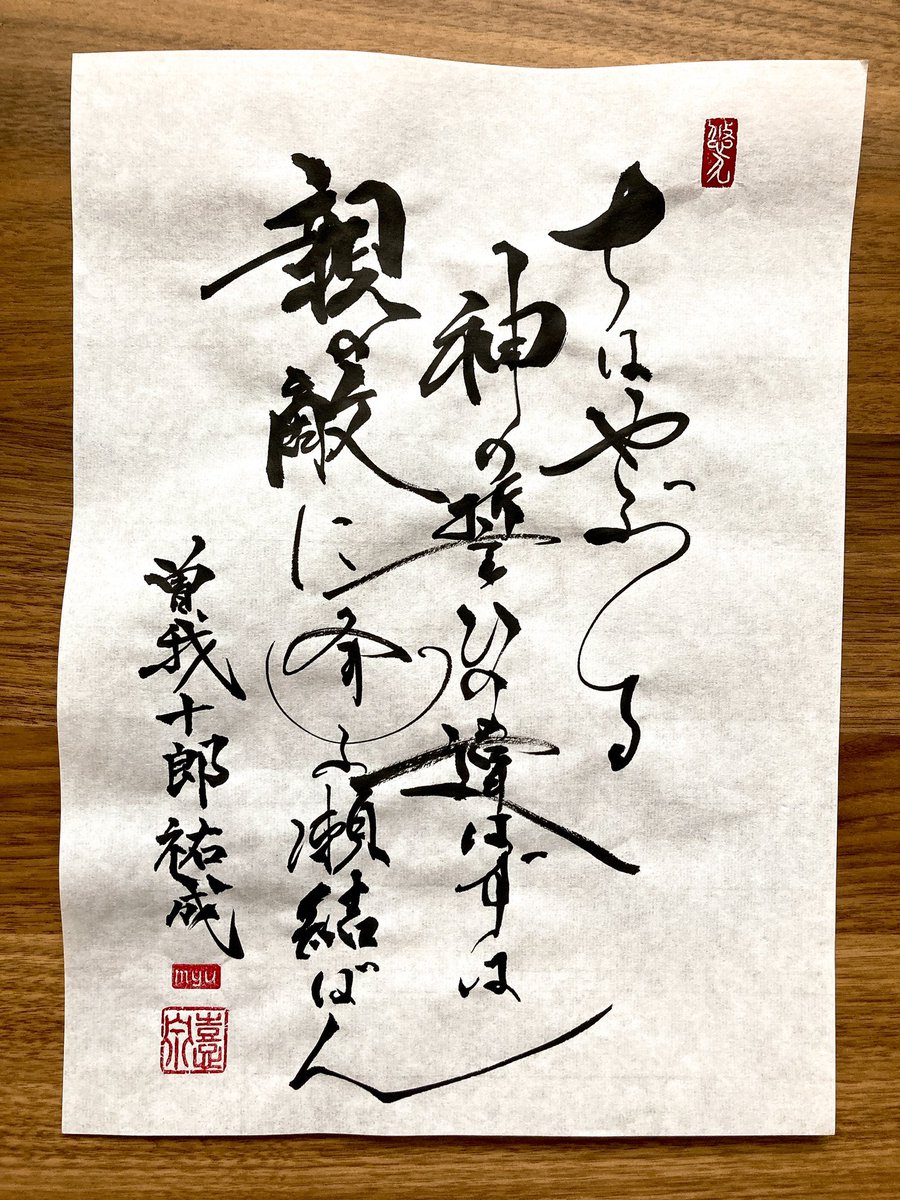 ちはやぶる
神の誓ひの違はずは
親の敵に逢ふ瀬結ばん
曽我十郎祐成
mgu